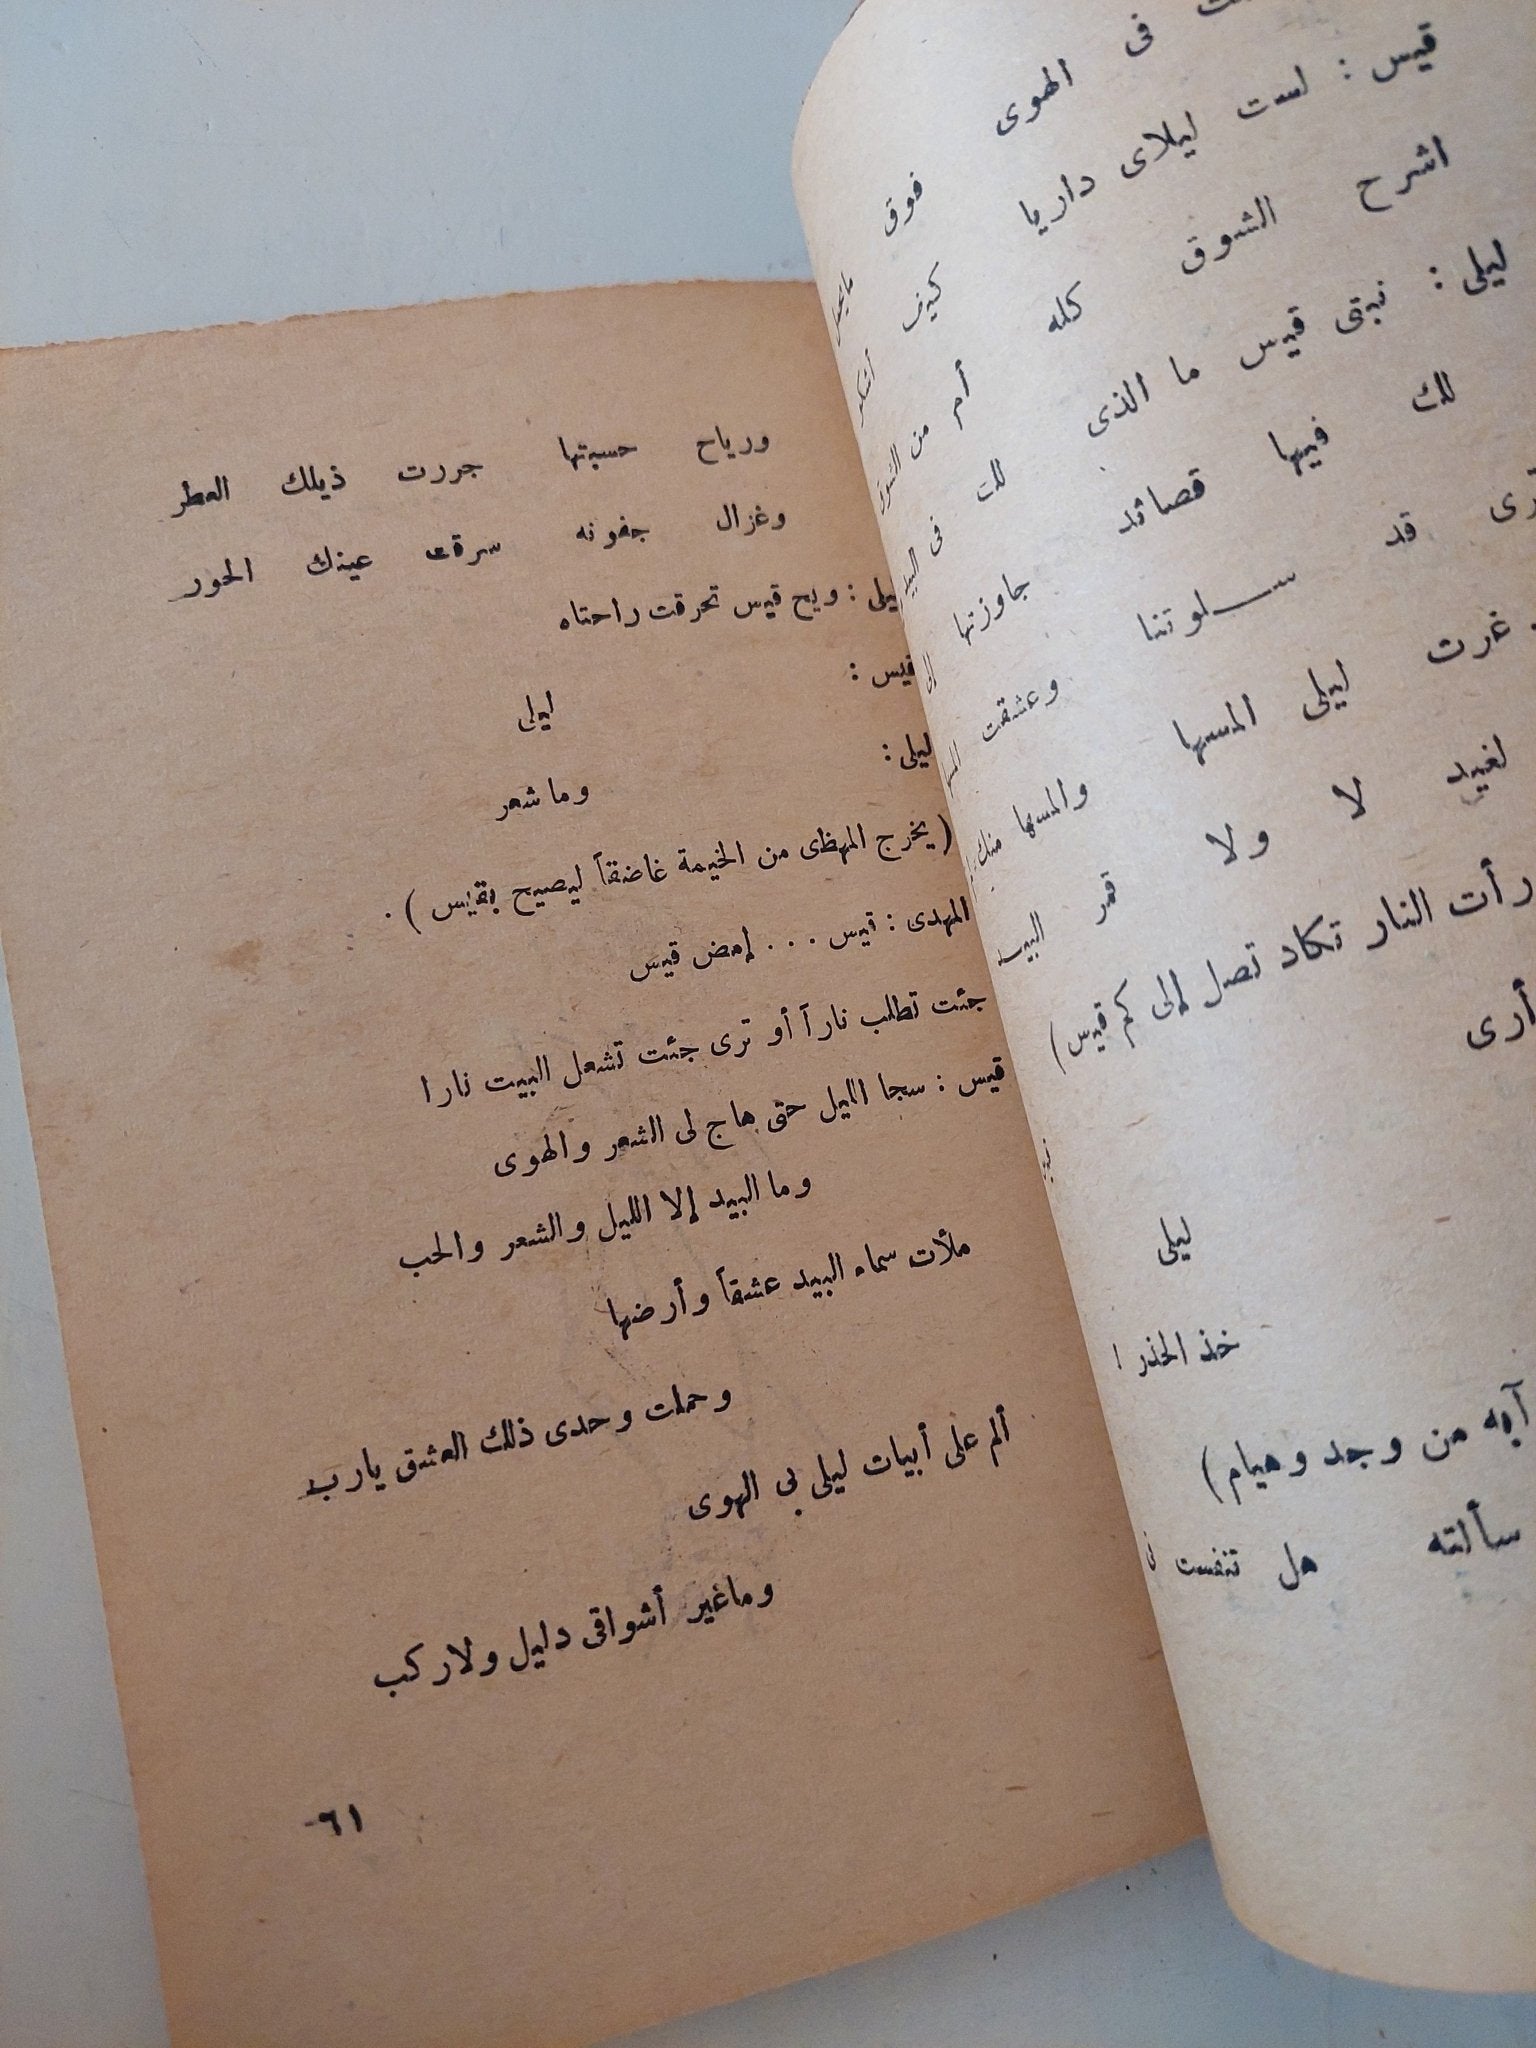 فى الهوى فوق
قيس : لست ليلاى داريا كيف أشكو
اشرح الشوق كله أم من الشوق
ليلى : نبنى قيس ما الذى لك فى البيد
لك فيها قصائد جاوزتها إلى
قد سلوتنا وعشقت
غرت ليلى المسها والمسها منك
لغيد لا ولا قمر البيد
رأت النار تكاد تصل إلى كم قيس )
أرى
ليلى
خذ الحذر !
آبه من وجد وهيام )
سألته هل تنفست
ورياح حسبتها جررت ذيلك العطر
وغزال جفونه سرقت عينك الحور
ليلى : ويح قيس تحرقت راحتاه
قيس :
ليلى
ليلى :
وما شعر
( يخرج المهظى من الخيمة غاضقاً ليصيح بقيس ) .
المهدى : قيس . . . إمض قيس
جئت تطلب ناراً أو ترى جئت تشعل البيت نارا
قيس : سجا الليل حتى هاج لى الشعر والهوى
وما البيد إلا الليل والشعر والحب
ملأت سماء البيد عشقاً وأرضها
وحملت وحدى ذلك العشق يارب
ألم على أبيات ليلى بى الهوى
وماغير أشواقى دليل ولاركب
٦١